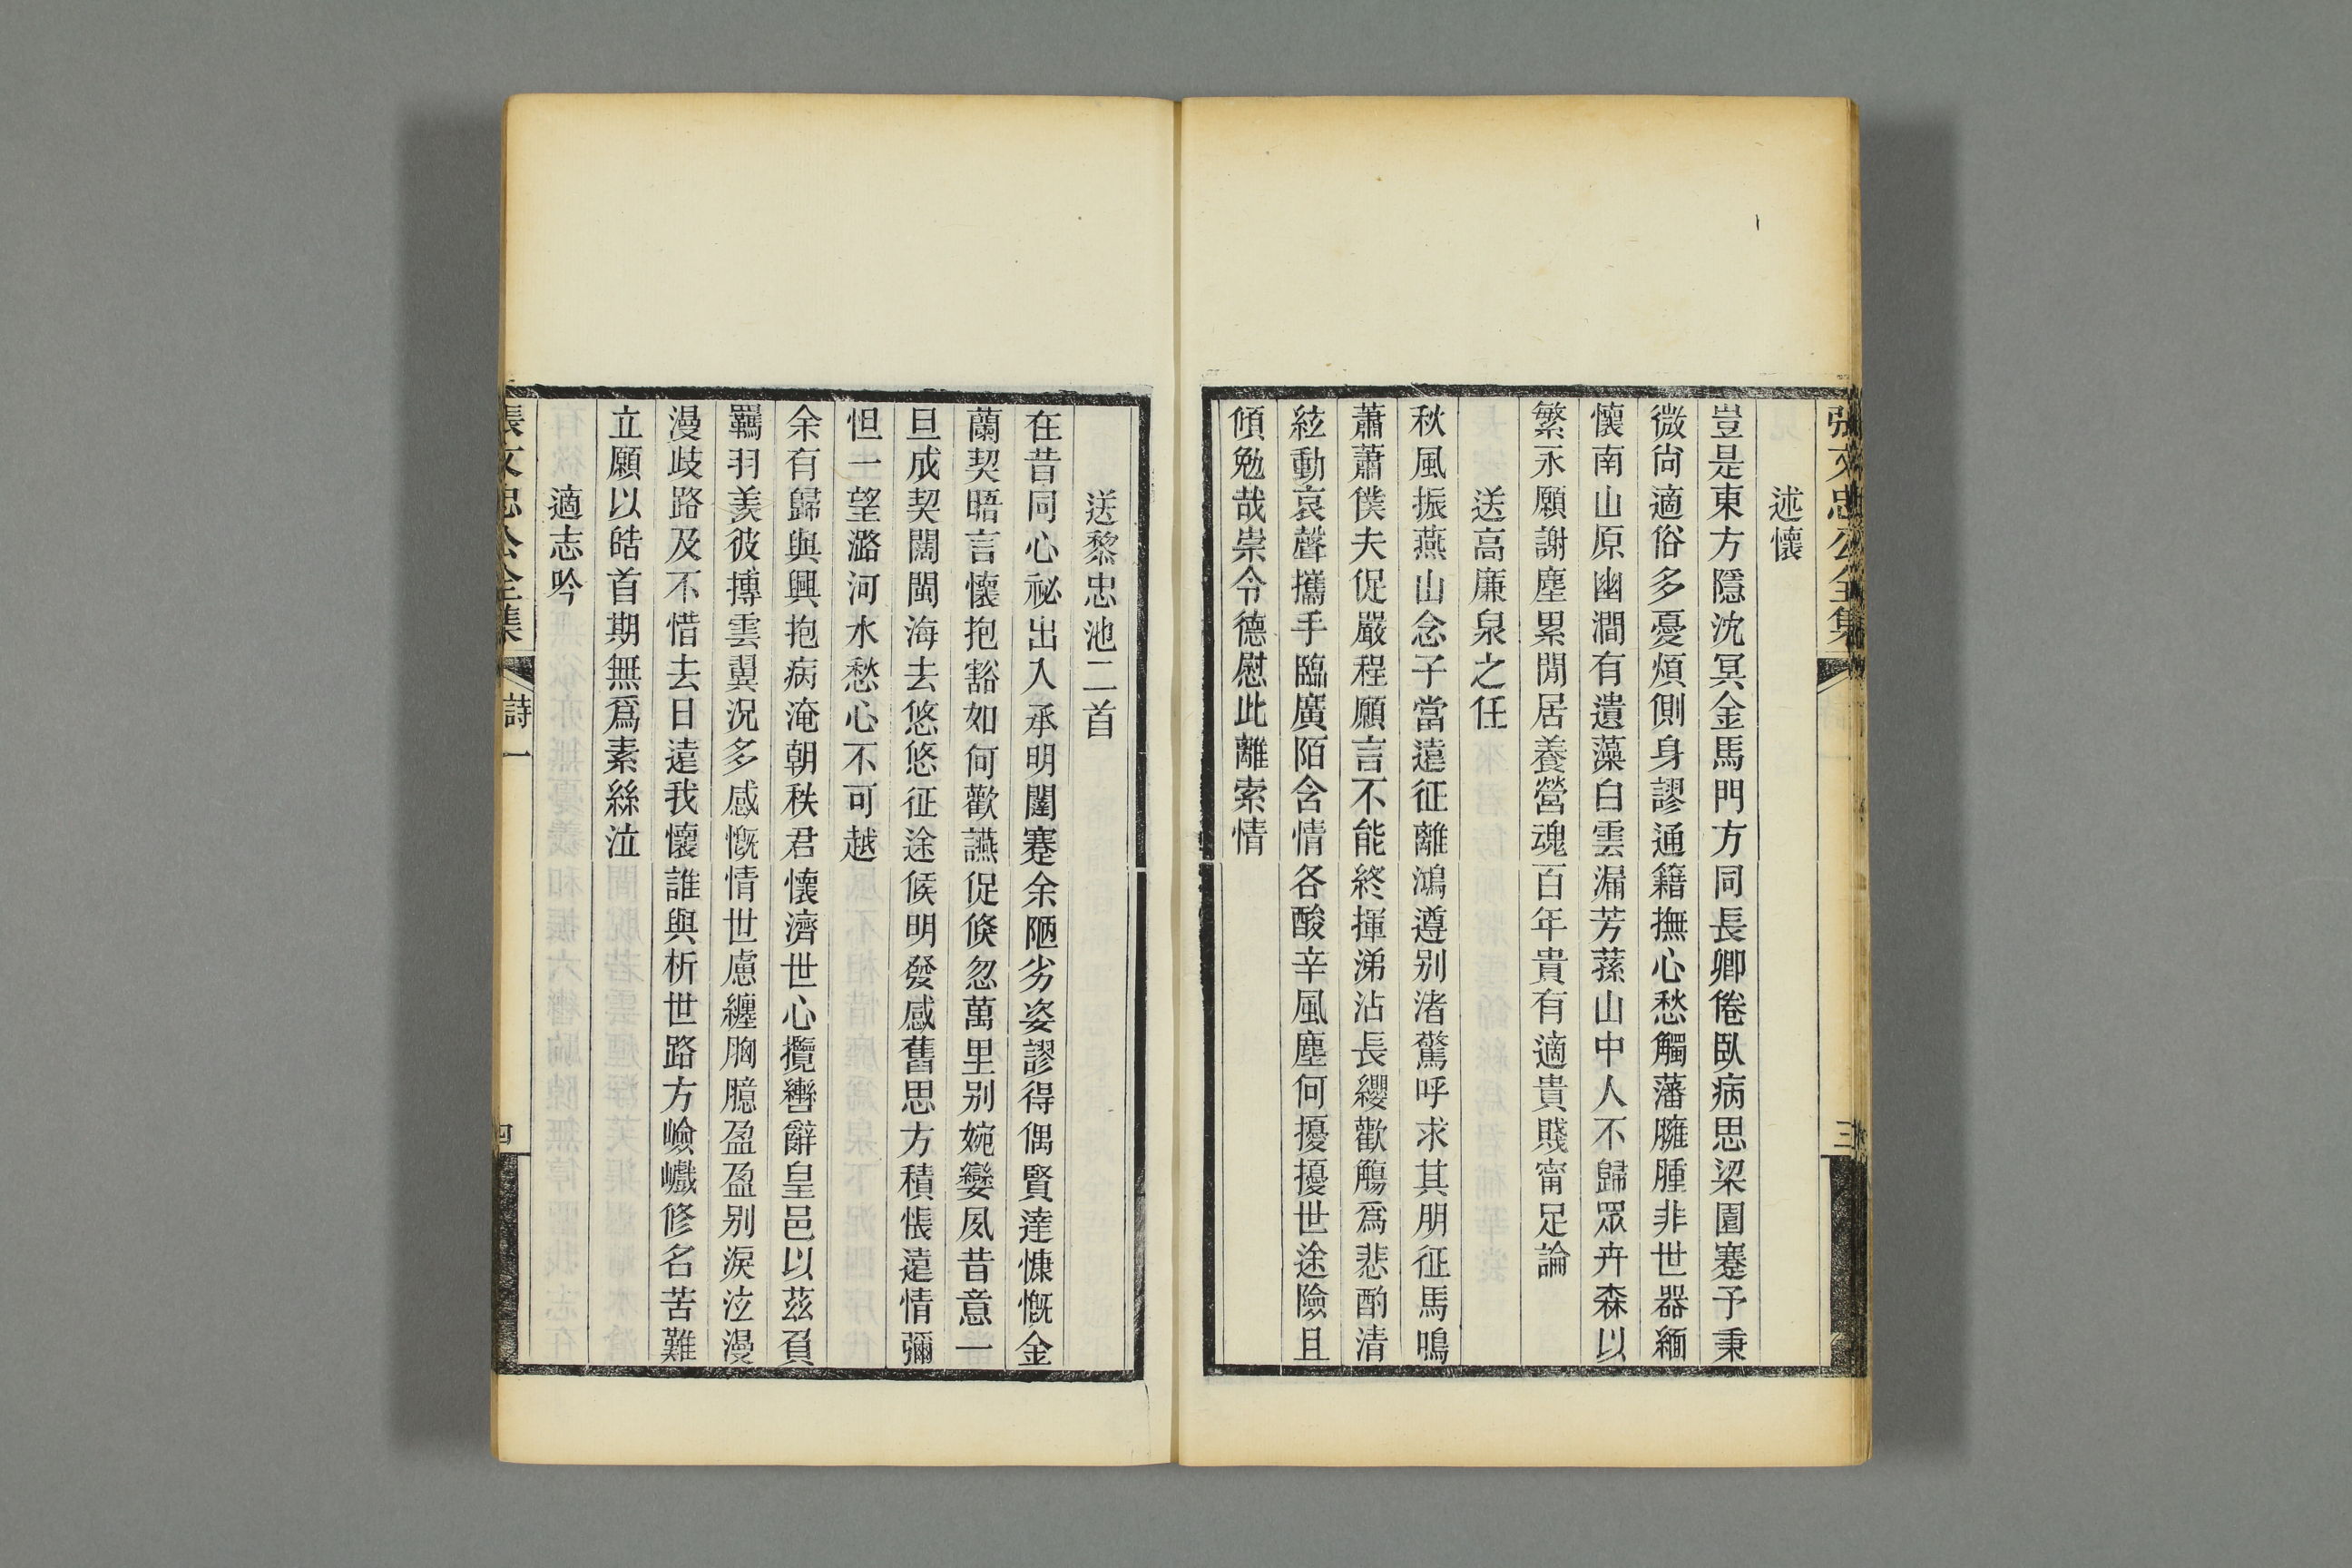 張文忠公全集
三
述懷
豈是東方隱沈冥金馬門方同長卿倦臥病思梁園蹇予秉
微尙適俗多憂煩側身謬通籍撫心愁觸藩臃腫非世器緬
懷南山原幽澗有遺藻白雲漏芳蓀山中人不歸眾卉森以
繁永願謝塵累閒居養營魂百年貴有適貴賤甯足論
送高廉泉之任
秋風振燕山念子當遠征離鴻遵别渚驚呼求其朋征馬鳴
蕭蕭僕夫促嚴程願言不能終揮涕沾長纓歡觴爲悲酌清
絃動哀聲攜手臨廣陌含情各酸辛風塵何擾擾世途險且
傾勉哉崇令德慰此離索情
送黎忠池二首
在昔同心祕出入承明闥蹇余陋劣姿謬得偶賢達慷慨金
蘭契晤言懷抱豁如何歡讌促倏忽萬里别婉孌夙昔意一
旦成契闊閩海去悠悠征途候明發感舊思方積悵遠情彌
怛一望潞河水愁心不可越
余有歸與興抱病淹朝秩君懷濟世心攬轡辭皇邑以茲負
羈羽羨彼摶雲翼況多感慨情世慮纏胸臆盈盈别淚泣漫
漫歧路及不惜去日遠我懷誰與析世路方嶮巇修名苦難
立願以皓首期無爲素絲泣
適志吟
張文忠公全集
詩一
四